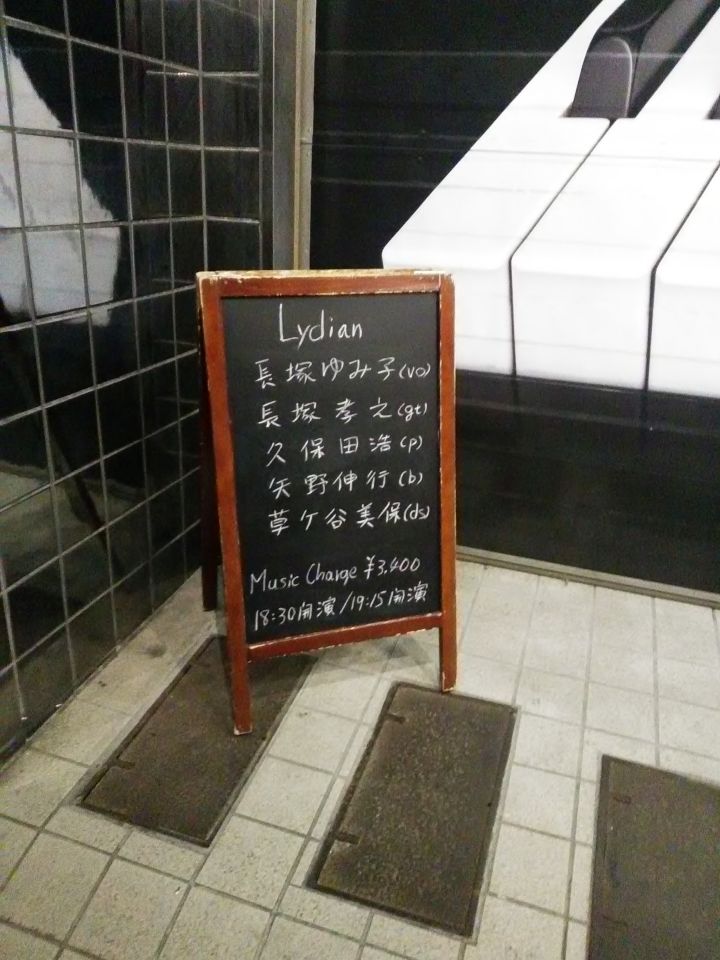 Lydian
長塚ゆみ子(vo)
長塚孝之(gt)
久保田浩(p)
矢野伸行(b)
草ケ谷美保(ds)
Music Charge ¥3,400
18:30開演/19:15開演